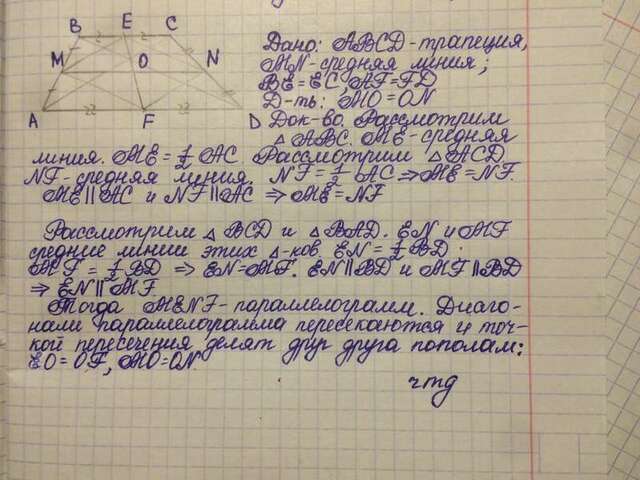 B E C
M O N
A F D
Дано: ABCD-трапеция,
MN-средняя линия;
BE=EC, AF=FD
Д-ть: MO=ON
Док-во. Рассмотрим
△ABC. ME-средняя
линия. ME=1/2 AC. Рассмотрим △ACD
NF-средняя линия. NF=1/2 AC ⇒ME=NF.
ME∥AC и NF∥AC ⇒ ME=NF
Рассмотрим △ BCD и △ BAD. EN и MF
средние линии этих △-ков. EN=1/2 BD.
MF=1/2 BD ⇒ EN=MF. EN∥BD и MF∥BD
⇒ EN∥MF
Тогда MENF-параллелограмм. Диаго-
нали параллелограмма пересекаются и точ-
кой пересечения делят друг друга пополам:
EO=OF, MO=ON
чтд